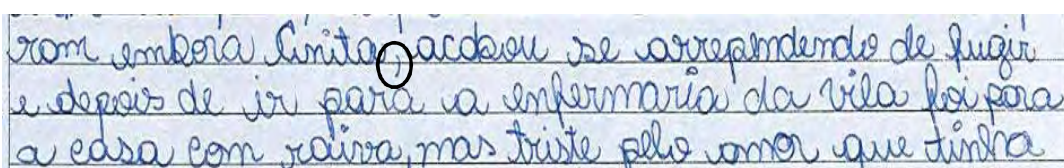 rom embora Anita, acabou se arrependendo de fugir
e depois de ir para a enfermaria da vila foi para
a casa com raiva, mas triste pelo amor que tinha